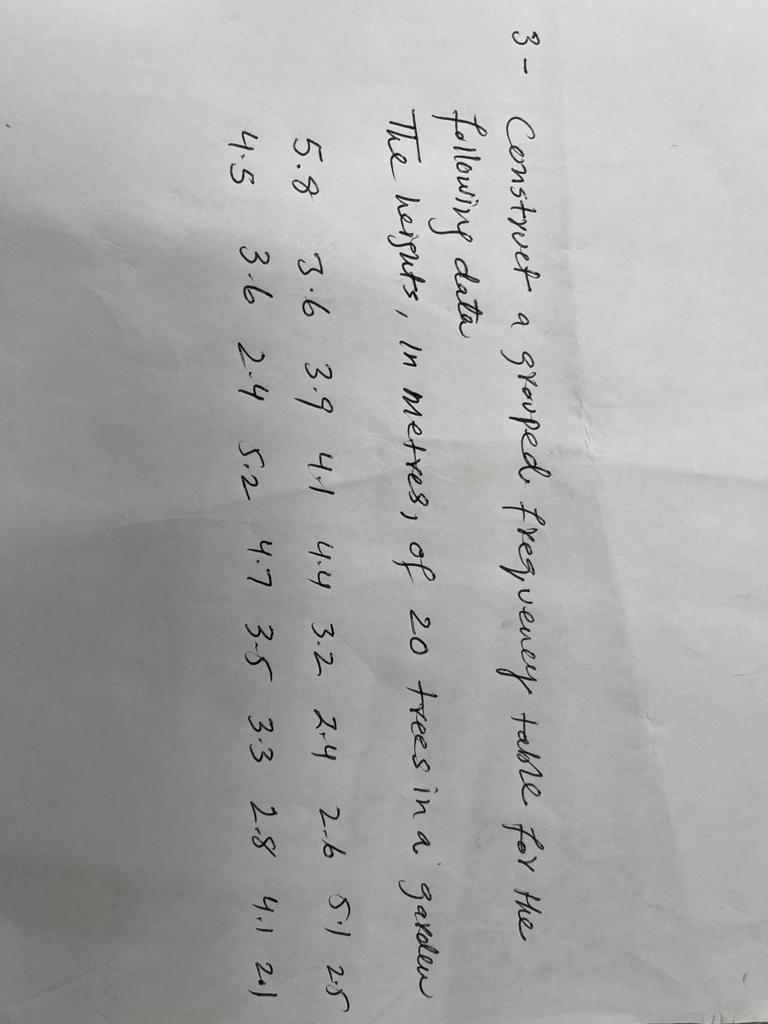 3- Construct a grouped frequency table for the
following data
The heights, in metres, of 20 trees in a garden
5.8 3.6 3.9 4.1 4.4 3.2 2.4 2.6 5.1 2.5
4.5 3.6 2.4 5.2 4.7 3.5 3.3 2.8 4.1 2.1